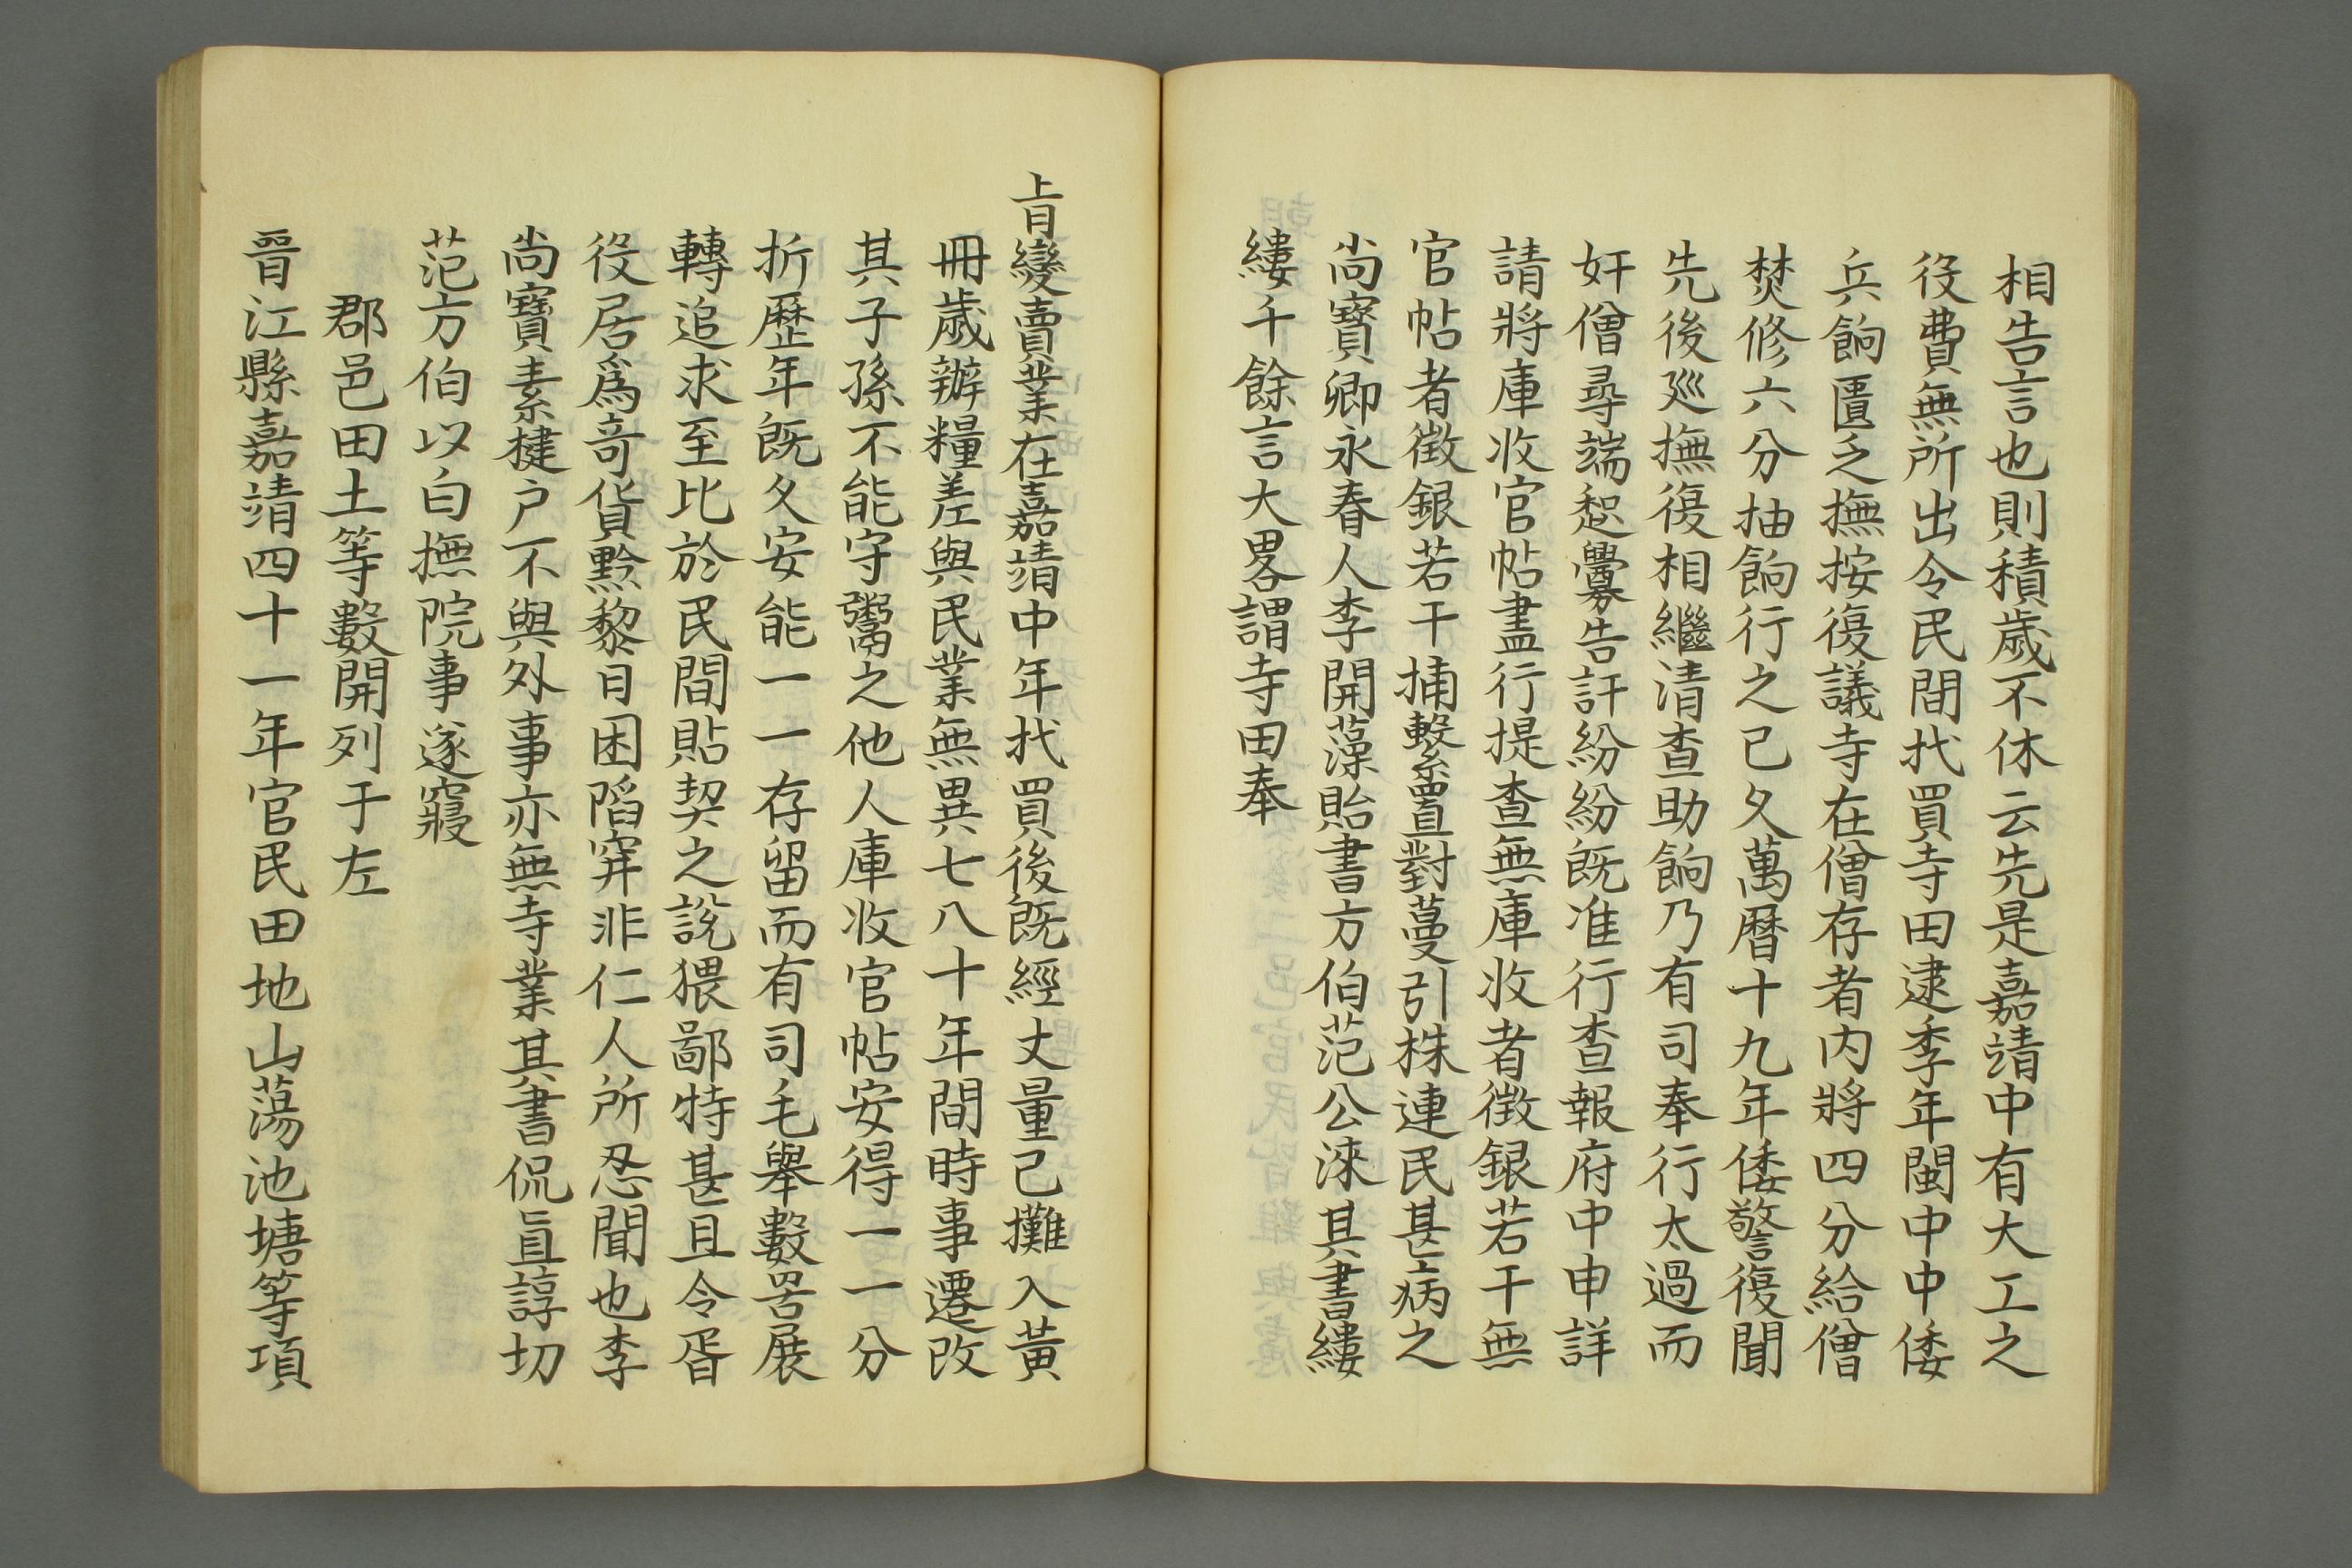 相告言也則積歲不休云先是嘉靖中有大工之
役費無所出令民間找買寺田逮季年閩中中倭
兵餉匱乏撫按復議寺在僧存者内將四分給僧
焚修六分抽餉行之已久萬曆十九年倭警復聞
先後廵撫復相繼清查助餉乃有司奉行太過而
奸僧尋端起釁告訐紛紛既准行查報府中申詳
請將庫收官帖盡行提查無庫收者徵銀若干無
官帖者徵銀若干捕繫置對蔓引株連民甚病之
尚寶卿永春人李開藻貽書方伯范公淶其書縷
縷千餘言大畧謂寺田奉
上旨變賣業在嘉靖中年找買後既經丈量已攤入黃
冊歲辦糧差與民業無異七八十年間時事遷改
其子孫不能守鬻之他人庫收官帖安得一一分
折歷年既久安能一一存留而有司毛舉數罟展
轉追求至比於民間貼契之說猥鄙特甚且令胥
役居爲奇貨黔黎日困陷穽非仁人所忍聞也李
尚寶素揵户不與外事亦無寺業其書侃直諄切
范方伯以白撫院事遂寢
郡邑田土等數開列于左
晉江縣嘉靖四十一年官民田地山蕩池塘等項